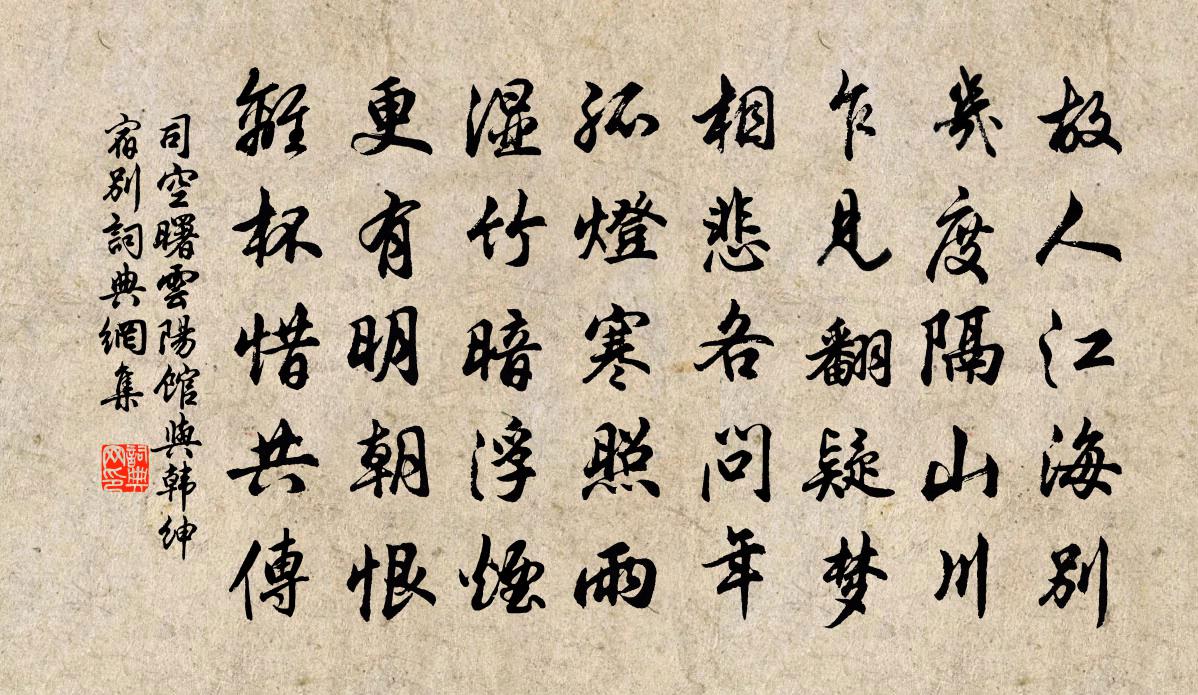 故人江海別
幾度隔山川
乍見翻疑梦
相悲各問年
孤燈寒照雨
湿竹暗浮煙
更有明朝恨
離杯惜共傳
司空曙雲陽館與韩紳
宿別詞典網集
詞典
网印